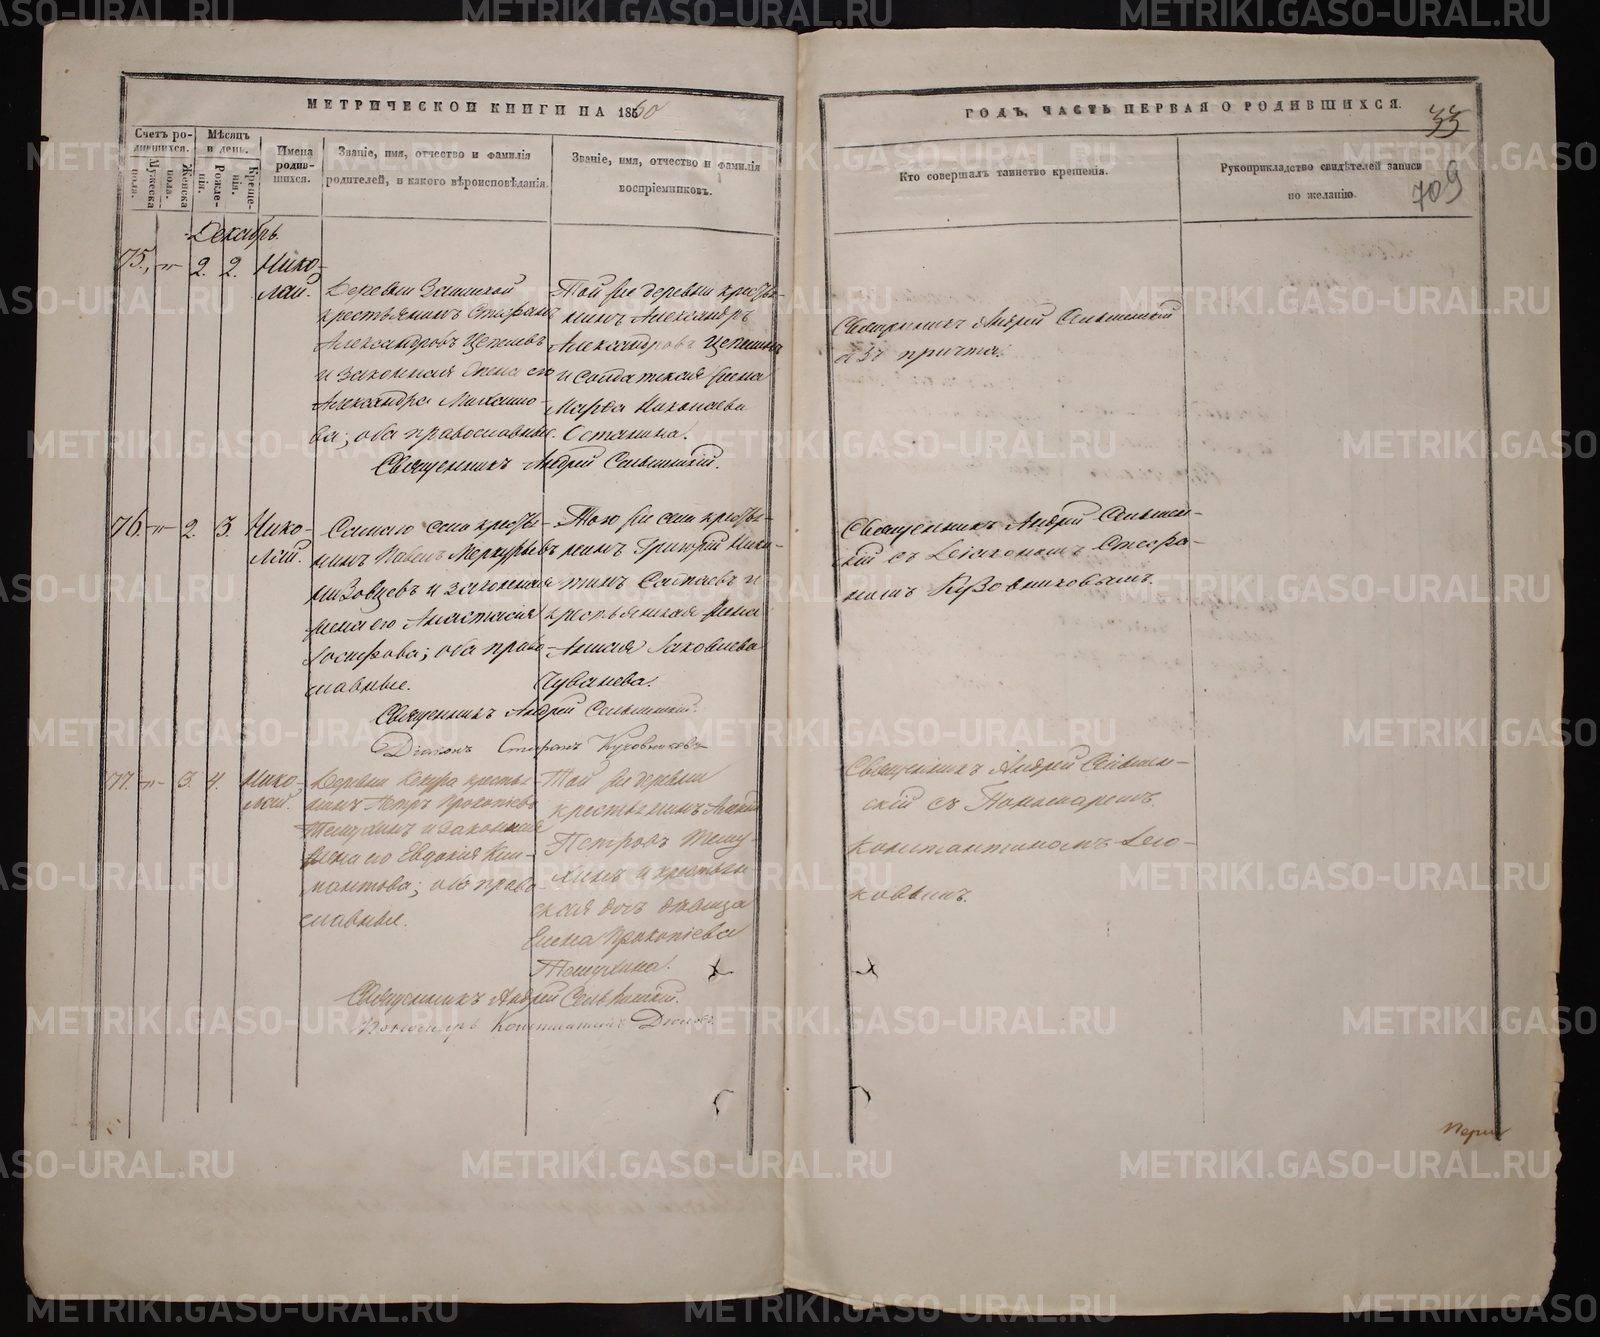 МЕТРИЧЕСКОЙ КНИГИ НА 1860
ГОДЪ, ЧАСТЬ ПЕРВАЯ О РОДИВШИХСЯ.
33
709
Счетъ родившихся.
Мужеска пола.
Женска пола.
Мѣсяцъ и день.
Рожденія.
Крещенія.
Имена родившихся.
Званіе, имя, отчество и фамилія родителей, и какого вѣроисповѣданія.
Званіе, имя, отчество и фамилія воспріемниковъ.
Кто совершалъ таинство крещенія.
Рукоприкладство свидѣтелей записи по желанію.
Декабрь.
75. 2. 2. Нико-
лай.
Деревни
крестьянинъ Стефанъ
Александровъ Цепелевъ
и законная жена его
Александра Михайло-
ва; оба православные.
Той же деревни кресть-
нинъ Александръ
Александровъ
и солдатская жена
Марфа Николаева
Останина.
Священникъ Андрей Сельменскій.
Священникъ Андрей Сельменскій
безъ причта.
76. 2. 3. Нико-
лай.
Самаго села кресть-
нинъ Павелъ Меркурьевъ
Низовцевъ и законная
жена его Анастасія
Іосифова; оба право-
славные.
Того же села кресть-
нинъ Григорій Ники-
тинъ и
крестьянская жена
Анна Яковлева
Чуваева.
Священникъ Андрей Сельменскій.
Діаконъ Стефанъ Кузовниковъ
Священникъ Андрей Сельмен-
скій съ Діакономъ Стефа-
номъ Кузовниковымъ.
77. 3. 4. Нико-
лай.
Деревни кресть-
нинъ Петръ Прокопіевъ
и законная
жена его Евдокия Кли-
мантова; оба право-
славные.
Той же деревни
крестьянинъ
Петровъ
и крестьян
ская дочь дѣвица
Елена Прокопіева
Священникъ Андрей Сельменскій.
Пономарь Константинъ
Священникъ Андрей Сельмен-
скій съ Пономаремъ
Константиномъ
ковымъ.